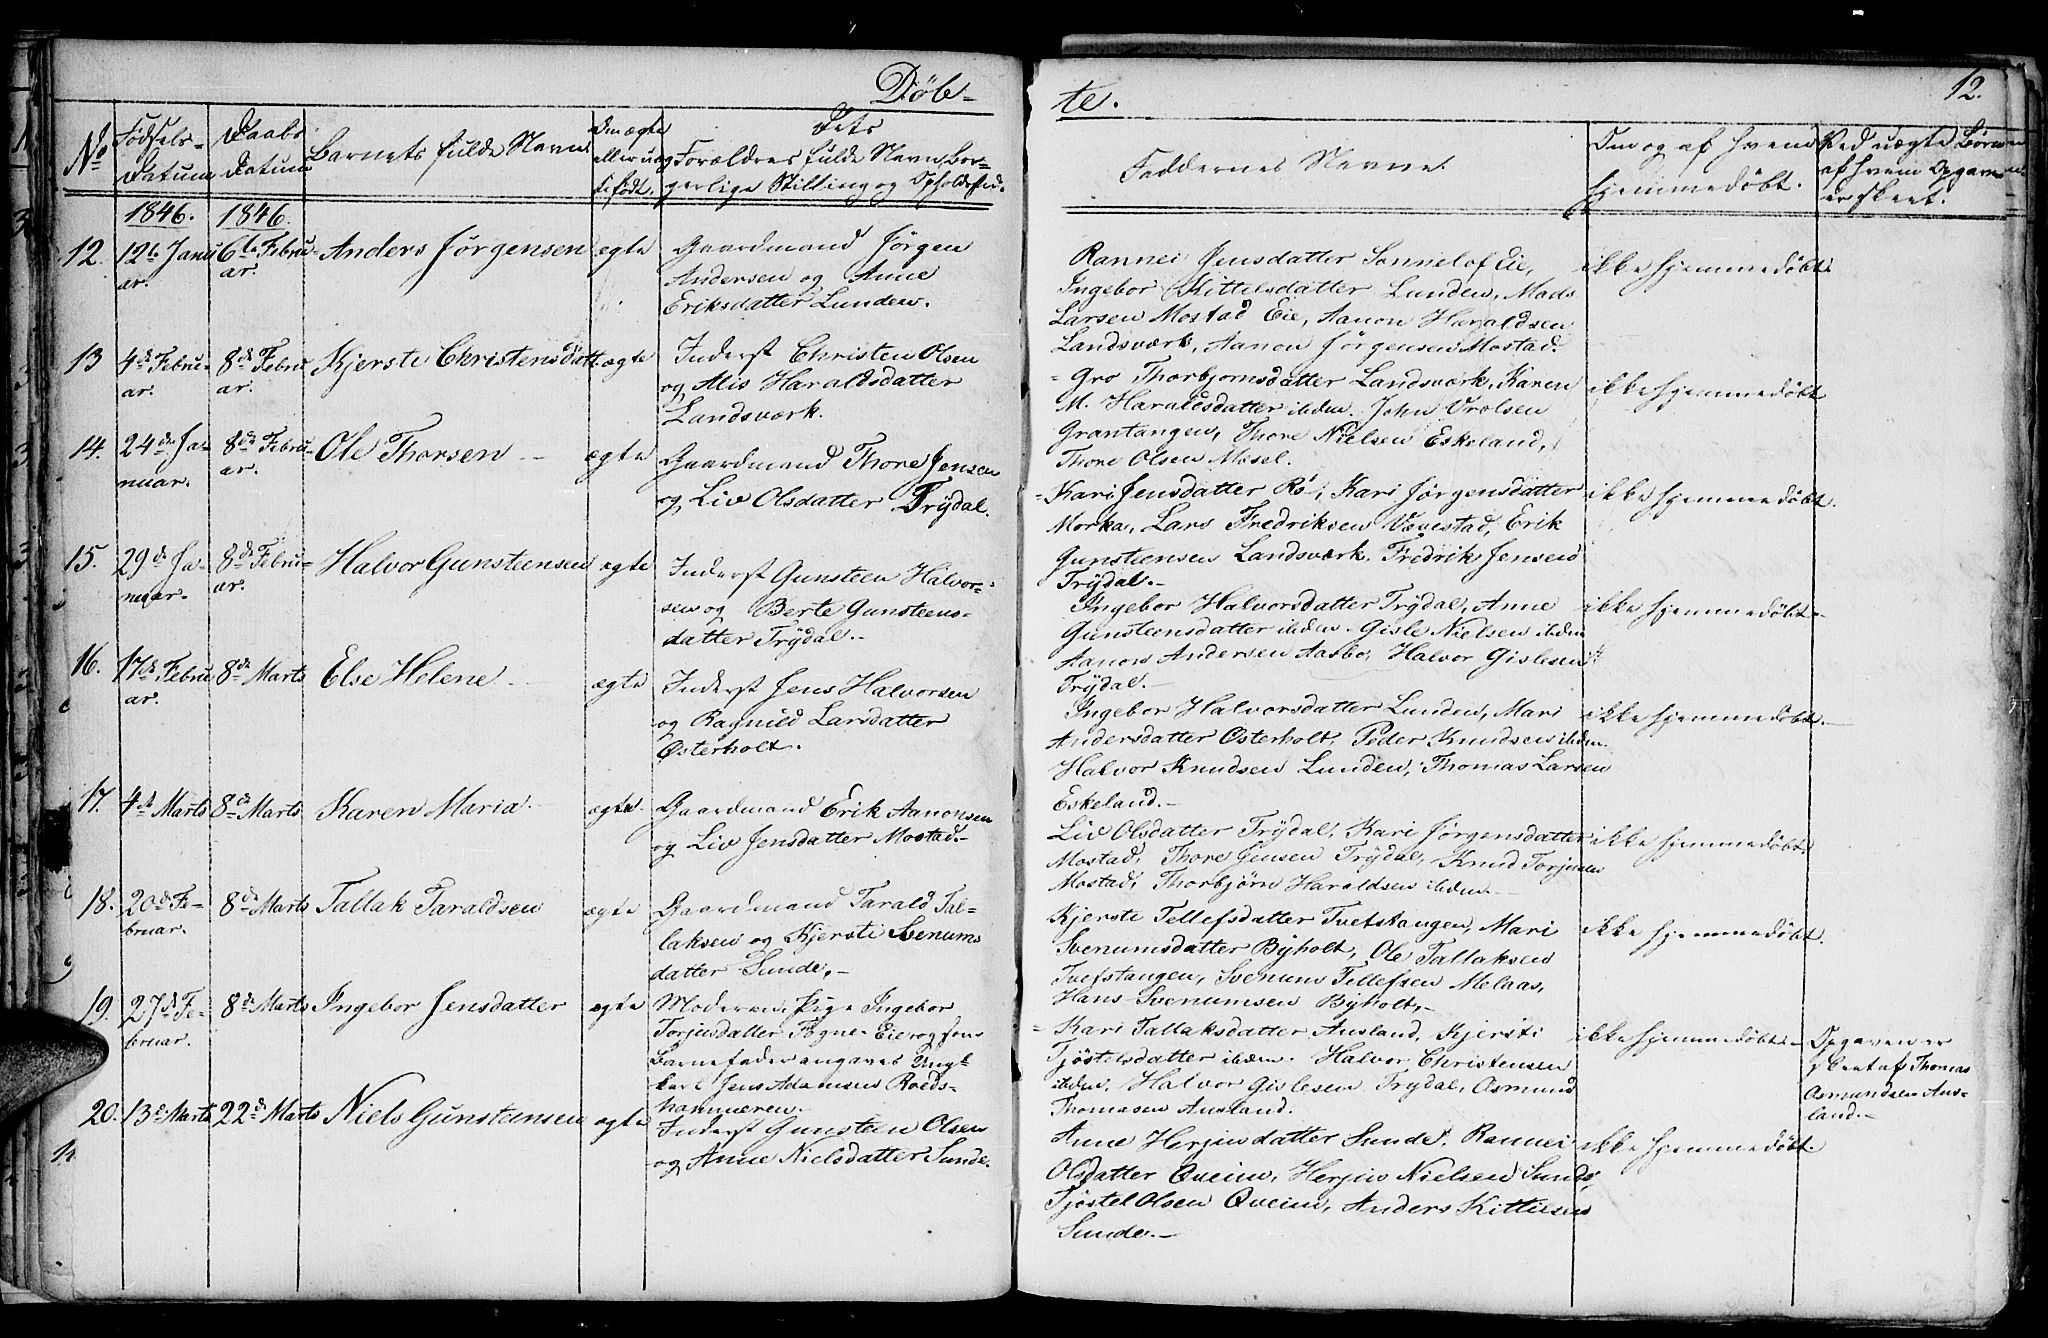 Døb-
te.
12.
No
Fødsels-
Datum
Daabs
Datum
Barnets fulde Navn
Om ægte
eller uæg
te født.
Dets
Forældres fulde Navn, Bor-
gerlige Stilling og Opholdssted.
Faddernes Navne.
Om og af hvem
hjemmedøbt.
Ved uægte Børn
af hvem Opgaven
er skeet.
1846.
1846.
12.
12te Janu
ar.
6te Febru-
ar.
Anders Jørgensen
ægte
Gaardmand Jørgen
Andersen og Anne
Eriksdatter Lunden.
Rannei Jensdatter Sonnelof Eie,
Ingebor Kittelsdatter Lunden, Mads
Larsen Mostad Eie, Aanon Haraldsen
Landsværk, Aanon Jørgensen Mostad.
ikke hjemmedøbt.
13
4de Febru-
ar.
8de Febru
ar.
Kjerste Christensdatt.
ægte
Inderst Christen Olsen
og Alis Haraldsdatter
Landsværk.
Gro Thorbjornsdatter Landsværk, Karen
M. Haraldsdatter ibiden. John Vrolsen
Grantangen, Thore Nielsen Eskeland,
Thore Olsen Mesel.
ikke hjemmedøbt
14.
24de Ja-
nuar.
8de Febru-
ar.
Ole Thorsen
ægte
Gaardmand Thore Jensen
og Liv Olsdatter Trÿdal.
Kari Jensdatter Rø, Kari Jørgensdatter
Morka, Lars Fredriksen Vævestad, Erik
Gunsteensen Landsværk. Fredrik Jensen
Trÿdal.-
ikke hjemmedøbt.
15.
29de Ja-
nuar.
8de Febru-
ar.
Halvor Gunsteensen
ægte
Inderst Gunsteen Halvor-
sen og Berte Gunsteens-
datter Trÿdal.-
Ingebor Halvorsdatter Trÿdal, Anne
Gunsteensdatter ibiden. Gisle Nielsen ibiden
Aanon Andersen Aasbo, Halvor Gislesen
Trÿdal.-
ikke hjemmedøbt-
16.
17de Febru
ar.
8de Marts
Else Helene
ægte
Inderst Jens Halvorsen
og Ragnild Larsdatter
Østerholt.
Ingebor Halvorsdatter Lunden, Mari
Andersdatter Østerholt, Peder Knudsen ibiden.
Halvor Knudsen Lunden, Thomas Larsen
Eskeland.-
ikke hjemmedøbt.-
17.
4de Marts
8de Marts
Karen Maria
ægte
Gaardmand Erik Aanonsen
og Liv Jensdatter Mostad.-
Liv Olsdatter Trÿdal, Kari Jørgensdatter
Mostad, Thore Jensen Trÿdal, Knud Torjusen
Mostad, Thorbjørn Haraldsen ibiden.-
ikke hjemmedøbt.
18.
20de Fe-
bruar.
8de Marts
Tallak Taraldsen
ægte
Gaardmand Tarald Tal-
laksen og Kjersti Svenums
datter Sunde,-
Kjerste Tellefsdatter Tvetstangen, Mari
Svenumsdatter Bÿholt, Ole Tallaksen
Tvefstangen, Svenum Tellefsen Melaas,
Hans Svenumsen Bÿholt,-
ikke hjemmedøbt.
19.
27de Fe-
bruar.
8de Marts
Ingebor Jensdatter
ægte
Moderen: Pige Ingebor
Torjusdatter
Barnefader angaves Ung-
karl Jens Adamsen Roeds-
hammeren.
Kari Tallaksdatter Ausland, Kjersti
Tjøstelsdatter ibiden. Halvor Christensen
ibiden, Halvor Gislesen Trÿdal, Osmund
Thomasen Ausland.
ikke hjemmedøbt.-
Opgaven er
skeet af Thomas
Osmundsen Aus-
land.-
20.
13de Marts
22de Marts
Niels Gunsteensen
ægte
Inderst Gunsteen Olsen
og Anne Nielsdatter Sunde.
Anne Herjusdatter Sunde. Rannei
Olsdatter Qveim, Herjus Nielsen Sunde,
Tjøstel Olsen Qveim, Anders Kittilsen
Sunde.-
ikke hjemmedøbt.